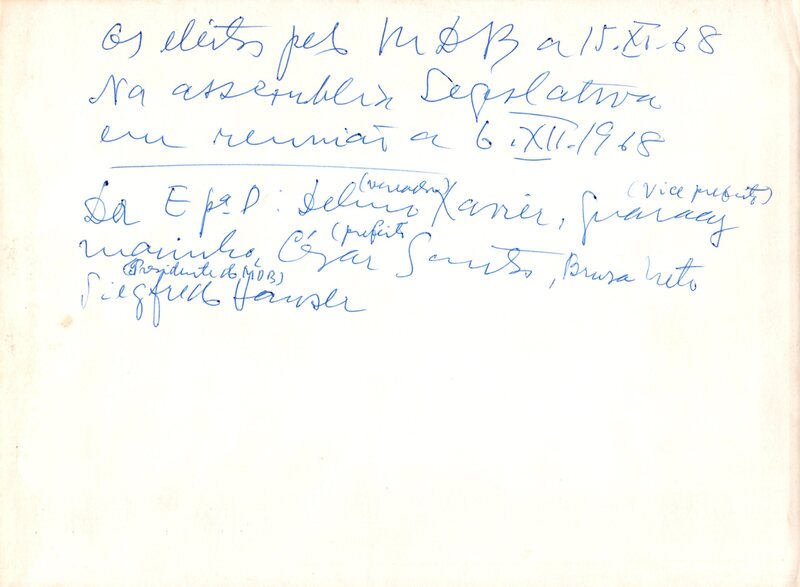 Os eleitos pelo MDB a 15.XI.68
Na assembleia Legislativa
em reunião a 6.XII.1968
(vereador) (Vice prefeito)
Da E pª D: Delmo Xavier, Guaracy
(prefeito
marinho, César Santos, Brusa Neto
(Presidente do MDB)
Siegfredo Hauser